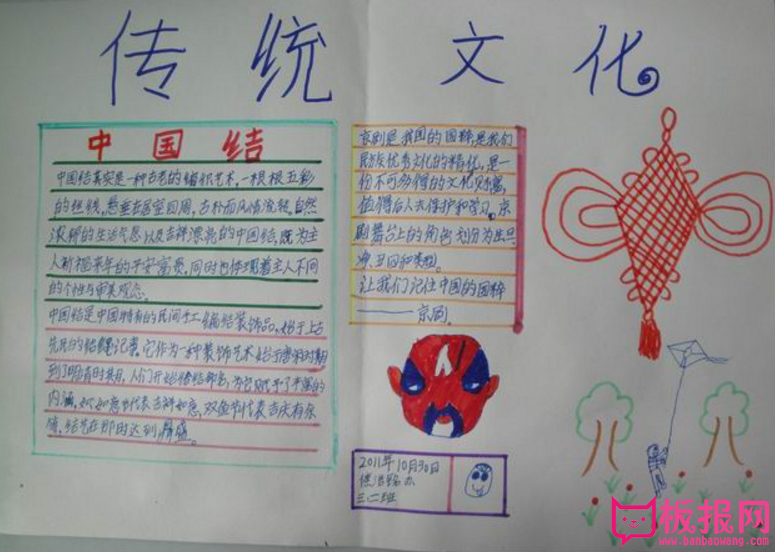 传统文化
中国结
中国结其实是一种古老的编织艺术。一根根五彩
的丝线,悬垂在居室四周,古朴而风情流转。自然
浓郁的生活气息以及吉祥漂亮的中国结,既为主
人祈福来年的平安富贵,同时也体现着主人不同
的个性与审美观态。
中国结是中国特有的民间手工编结装饰品,始于上古
先民的结绳记事。它作为一种装饰艺术始于唐朝时期
到了明清时期,人们开始给结命名,为它赋予了丰富的
内涵,如如意节代表吉祥如意,双鱼节代表吉庆有余
等,结艺在那时达到鼎盛。
京剧是我国的国粹,是我们
民族优秀文化的精化,是一
份不可多得的文化财富,
值得后人去保护和学习。京
剧舞台上的角色划分为生、旦
净、丑四种类型。
让我们记住中国的国粹
———京剧。
2011年10月30日
办
三、二班
板报网
www.banbaowang.com